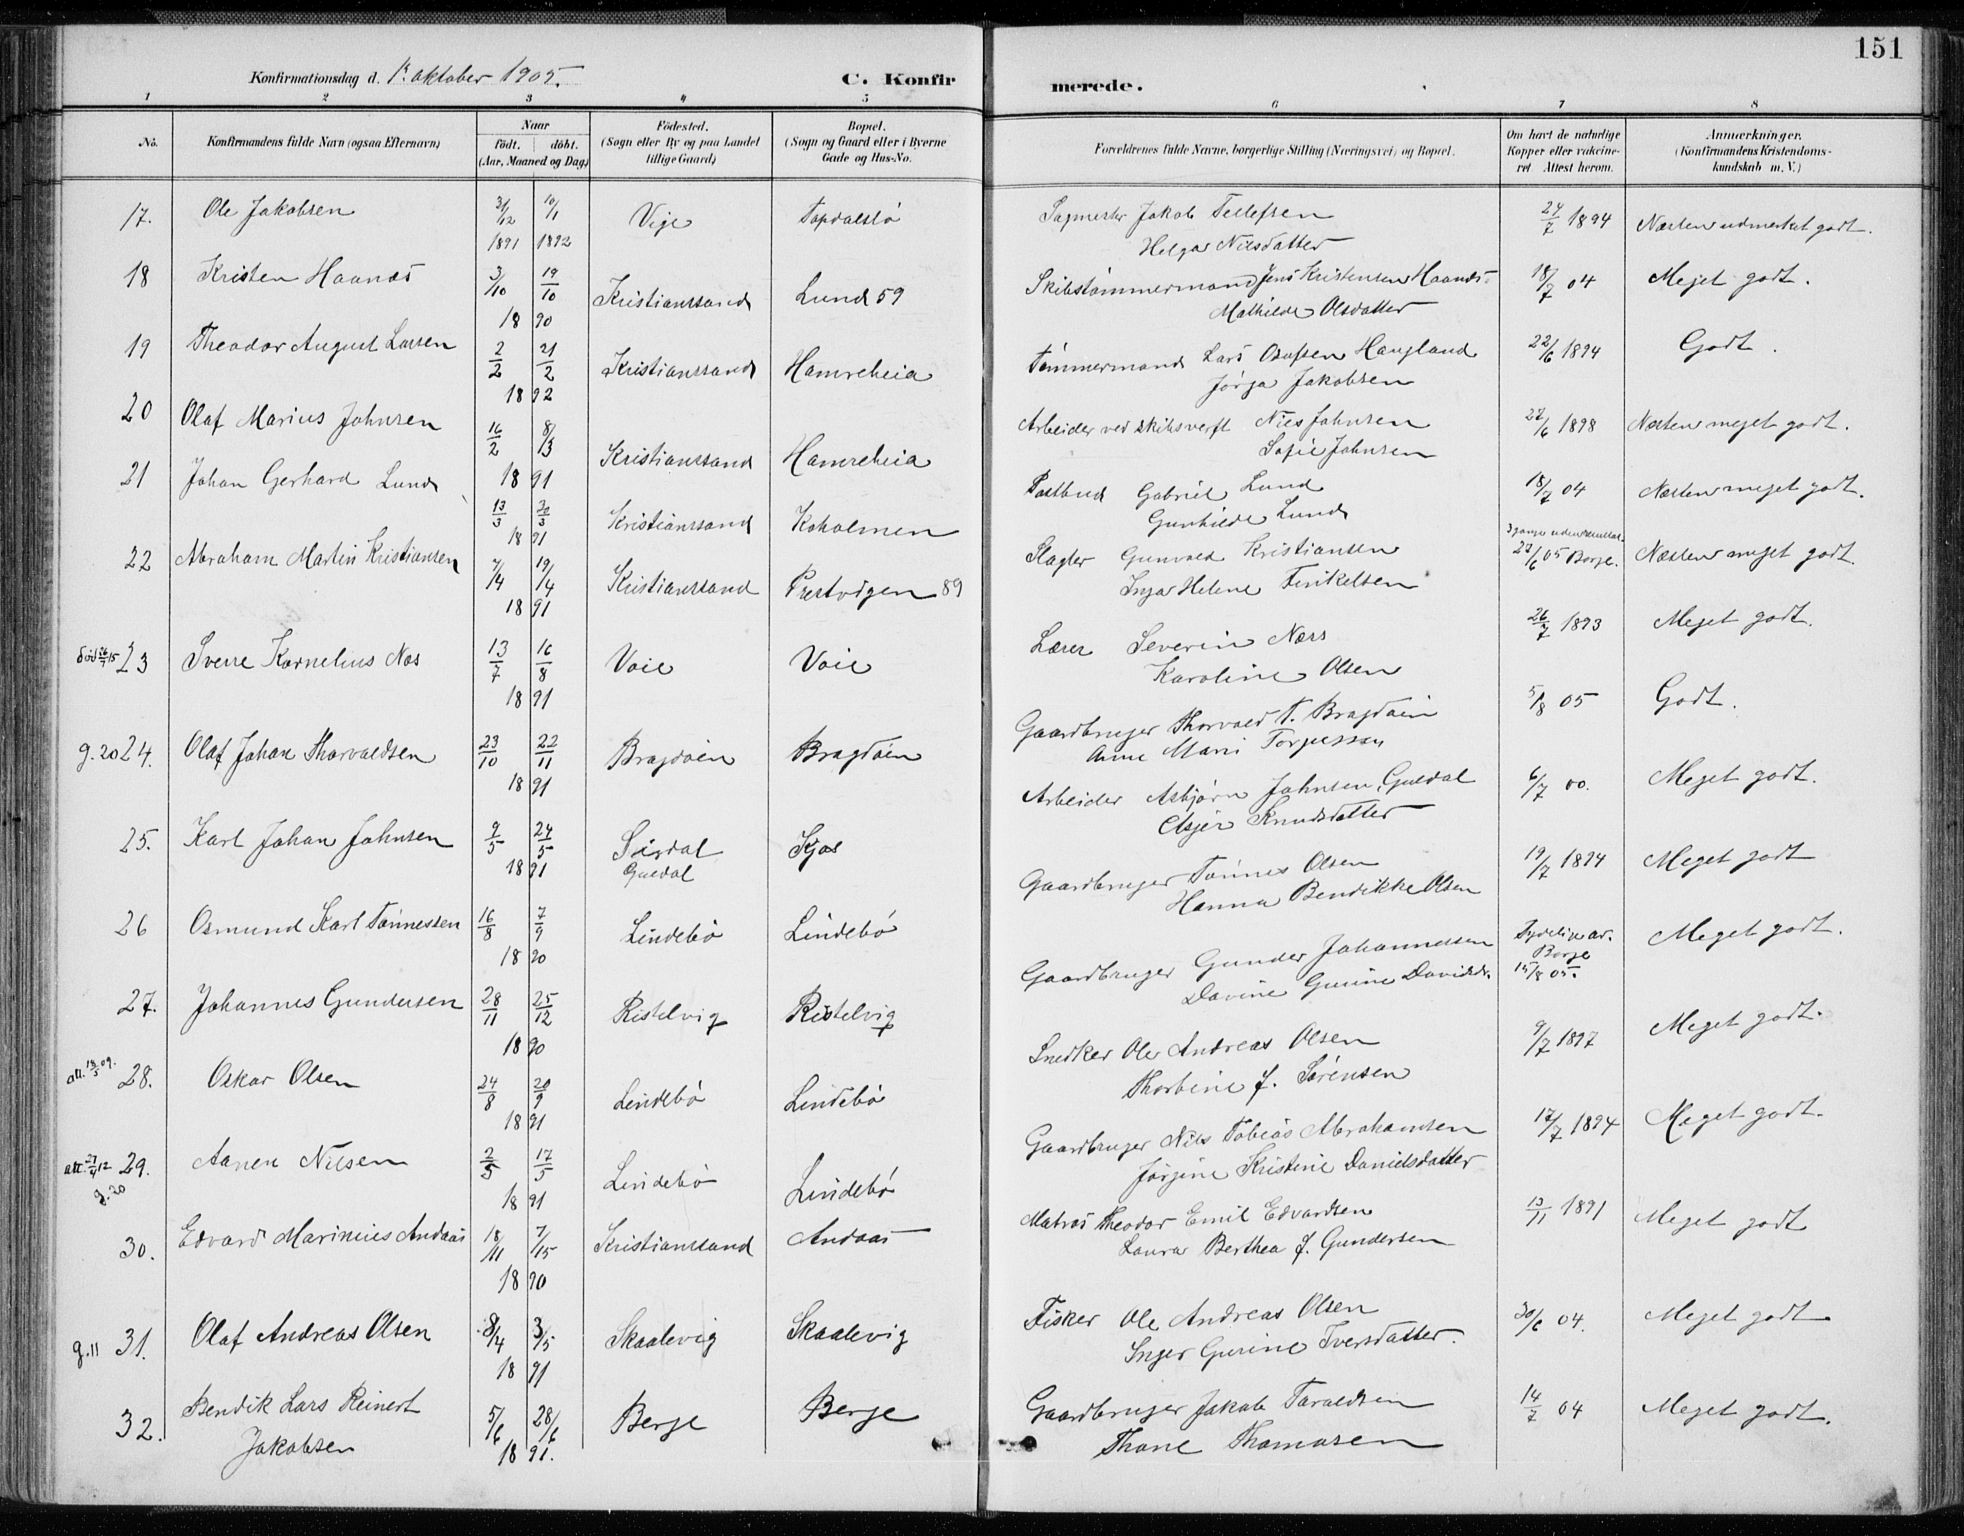 151
Konfirmationsdag d. 1ste oktober 1905.
C. Konfirmerede.
1 2 3 4 5 6 7 8
No.
Konfirmandens fulde Navn (ogsaa Efternavn)
Naar
født. døbt.
(Aar, Maaned og Dag)
Fødested.
(Sogn eller By og paa Landet
tillige Gaard)
Bopæl.
(Sogn og Gaard eller i Byerne
Gade og Hus-No.
Forældrenes fulde Navne, borgerlige Stilling (Næringsvei) og Bopæl.
Om havt de naturlige
Kopper eller vakcineret
Attest herom.
Anmærkninger.
(Konfirmandens Kristendomskundskab
m. V.)
17. Ole Jakobsen 3/12 1891 10/1 1892 Vige Topdalsbø Sagmester Jakob Tellefsen 24/7 1894 Næsten udmerket godt.
Helga Nilsdatter
18 Kristen Haanæs 3/10 19/10 1890 Kristianssand Lund 59 Skibstømmermand Jens Kristensen Haanæs. 18/7 04 Meget godt.
Mathilde Olsdatter
19 Theodor August Larsen 2/2 21/2 1892 Kristianssand Hamreheia Tømmermand Lars Osufsen Haugland 22/6 1894 Godt.
Jørga Jakobsen
20 Olaf Marius Johnsen 16/2 8/3 1891 Kristianssand Hamreheia Arbeider ved skibsverft Nils Johnsen 27/6 1898 Næsten meget godt.
Sofie Johnsen
21 Johan Gerhard Lund 13/3 30/3 1891 Kristianssand Koholmen Postbud Gabriel Lund 18/7 04 Næsten meget godt.
Gunhilde Lund
22 Abraham Martin Kristiansen 7/4 19/4 1891 Kristianssand Prestvigen 89 Slagter Gunvald Kristiansen 3 gange uden resultat. 27/6 05 Borge. Næsten meget godt.
Inga Helene Terkelsen
død 26/7 15 23 Sverre Kornelius Næs 13/7 16/8 1891 Voie Voie Lærer Severin Næss 26/7 1893 Meget godt.
Karoline Olsen
g.20 24. Olaf Johan Thorvaldsen 23/10 22/11 1891 Bragdøen Bragdøen Gaardbruger Thorvald T. Bragdøen 5/8 05 Godt.
Anne Marie Torgussen
25. Karl Johan Johnsen 9/5 24/5 1891 Sirdal Guldal Kjos Arbeider Asbjørn Johnsen, Guldal 6/7 00. Meget godt.
Asjer Knudsdatter
26 Osmund Karl Tønnessen 16/8 7/9 1890 Lindebø Lindebø Gaardbruger Tønnes Olsen 19/7 1894 Meget godt
Hanna Bendikke Olsen
27. Johannes Gundersen 28/11 25/12 1890 Ristelvig Ristelvig Gaardbruger Gunder Johannessen Tydelige ar. Borge 15/8 05. Meget godt.
Davine Gurine Davidsdr.
att. 18/5 09. 28. Oskar Olsen 24/8 20/9 1891 Lindebø Lindebø Snedker Ole Andreas Olsen 9/7 1897 Meget godt.
Thorbine J. Sørensen
att. 27/4 12 g.20 29. Aanen Nilsen 2/5 17/5 1891 Lindebø Lindebø Gaardbruger Nils Tobias Abrahamsen 17/7 1894 Meget godt.
Jørgine Kristine Danielsdatter
30. Edvard Marinius Andaas 18/11 7/15 1890 Kristianssand Andaas Matros Theodor Emil Edvardsen 13/11 1891 Meget godt
Laura Berthea J. Gundersen
g.11 31. Olaf Andreas Olsen 8/4 3/5 1891 Skaalevig Skaalevig Fisker Ole Andreas Olsen 30/6 04. Meget godt
Inger Gurine Iversdatter.
32. Bendik Lars Reinert Jakobsen 5/6 28/6 1891. Berge Berge Gaardbruger Jakob Taraldsen 14/7 04 Meget godt.
Thone Thomasen